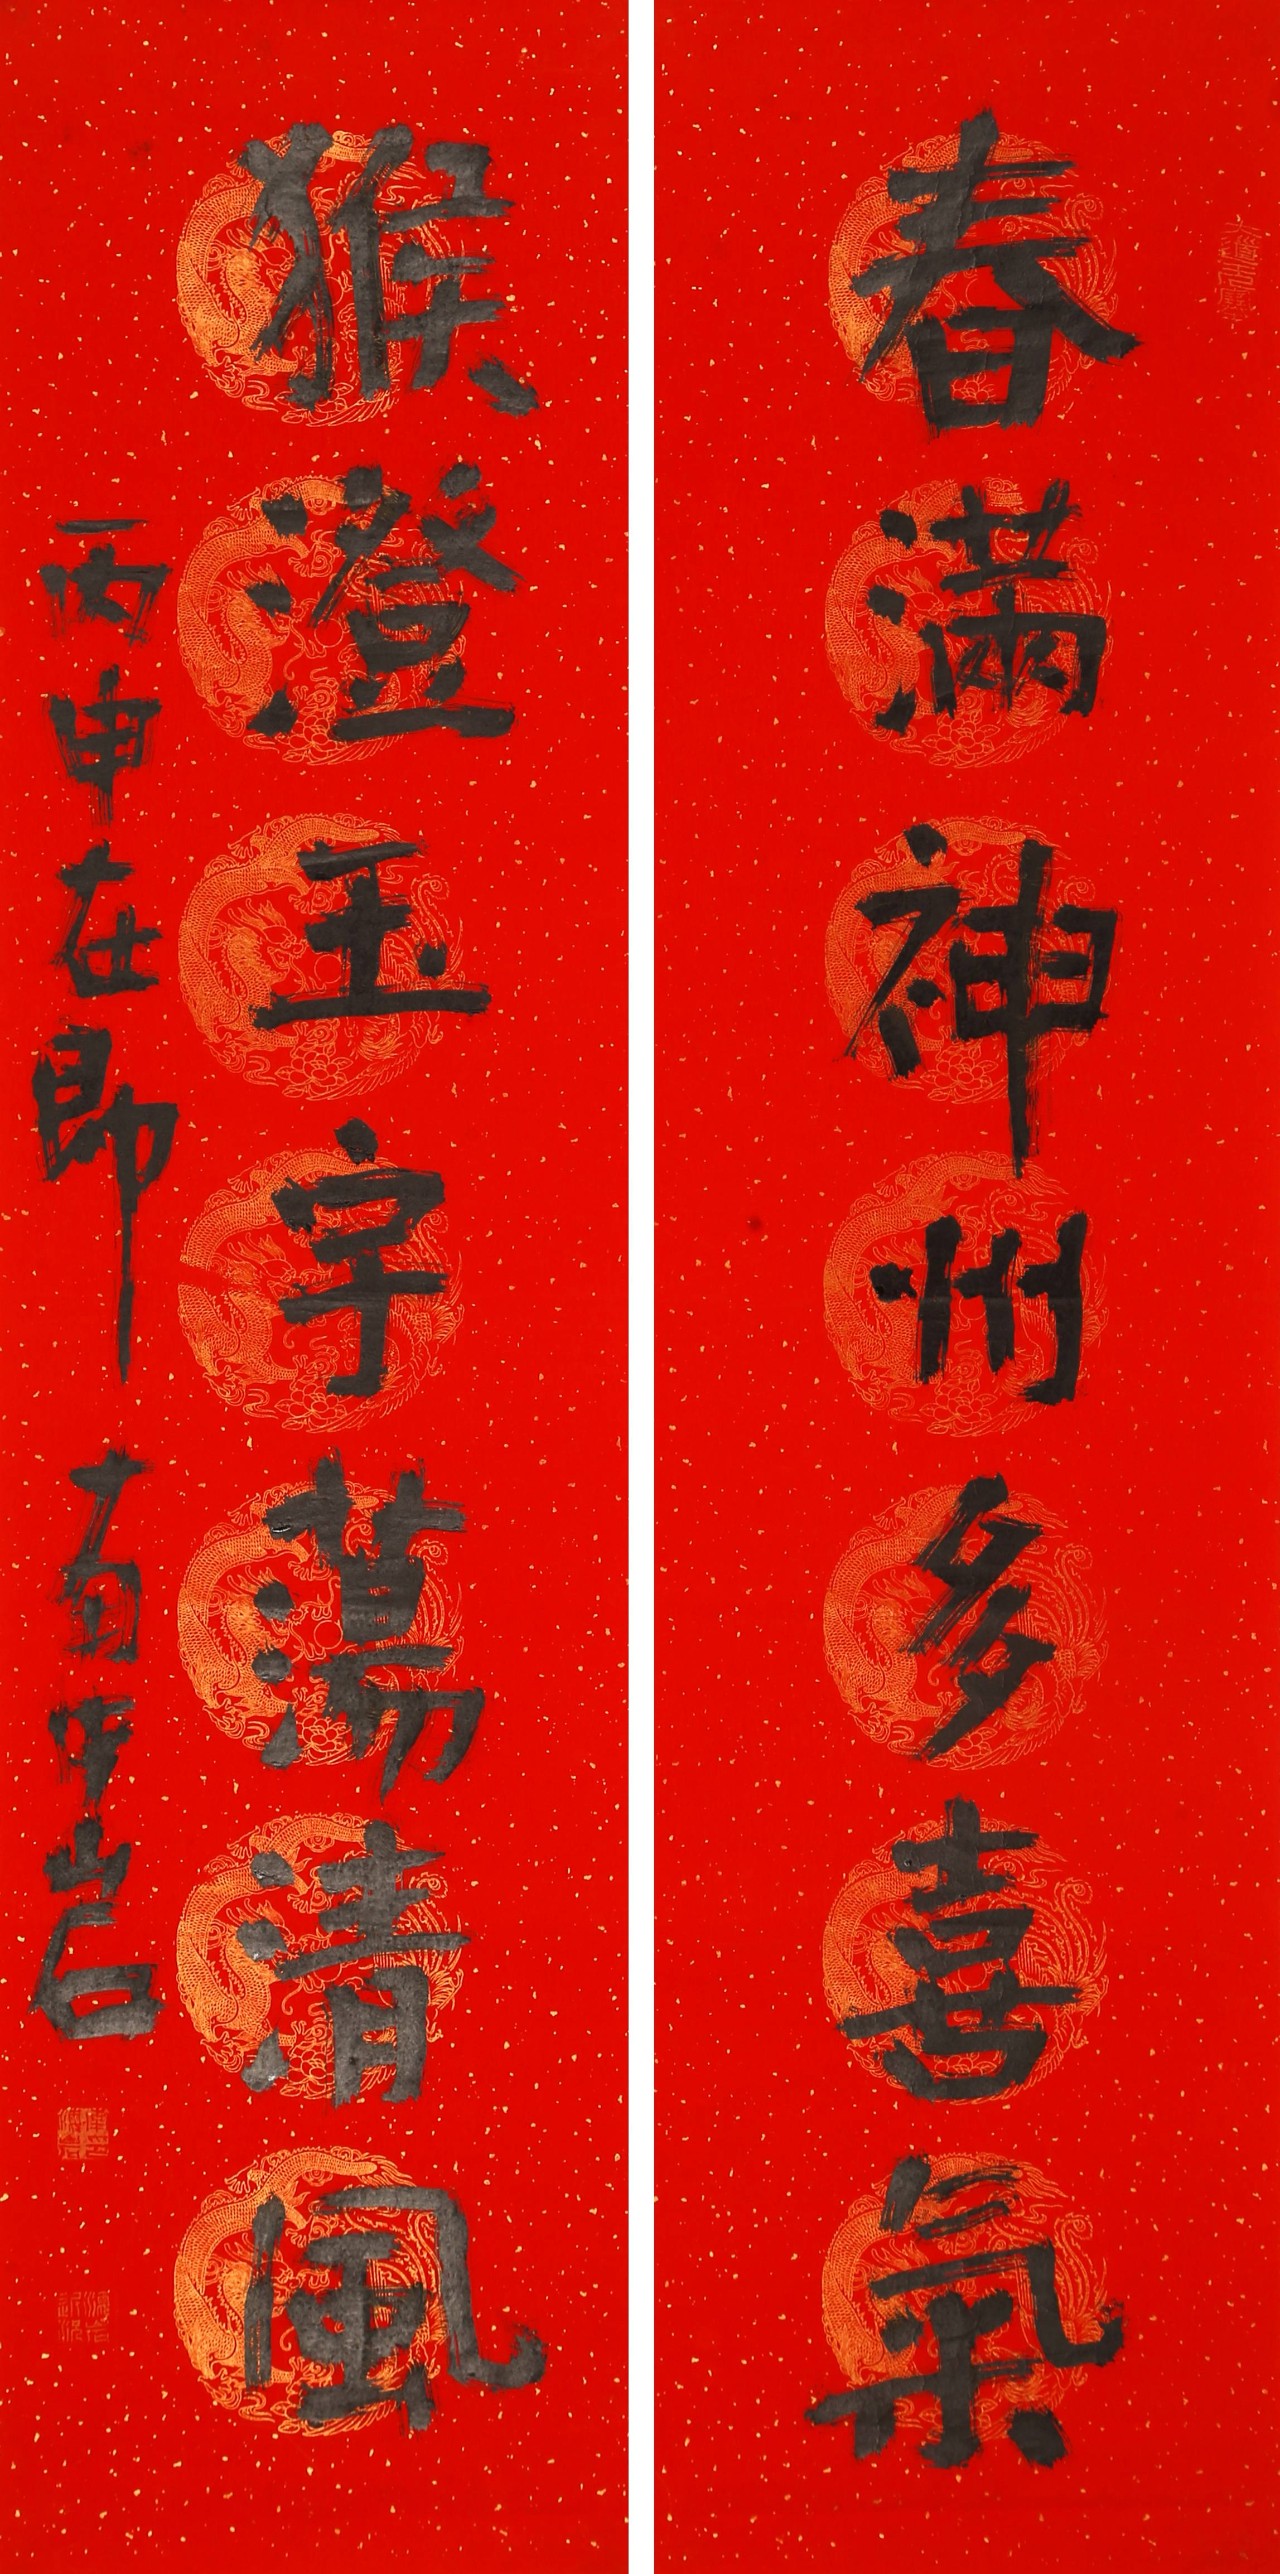 春滿神州多喜氣
猴澄玉宇蕩清風
丙申在即